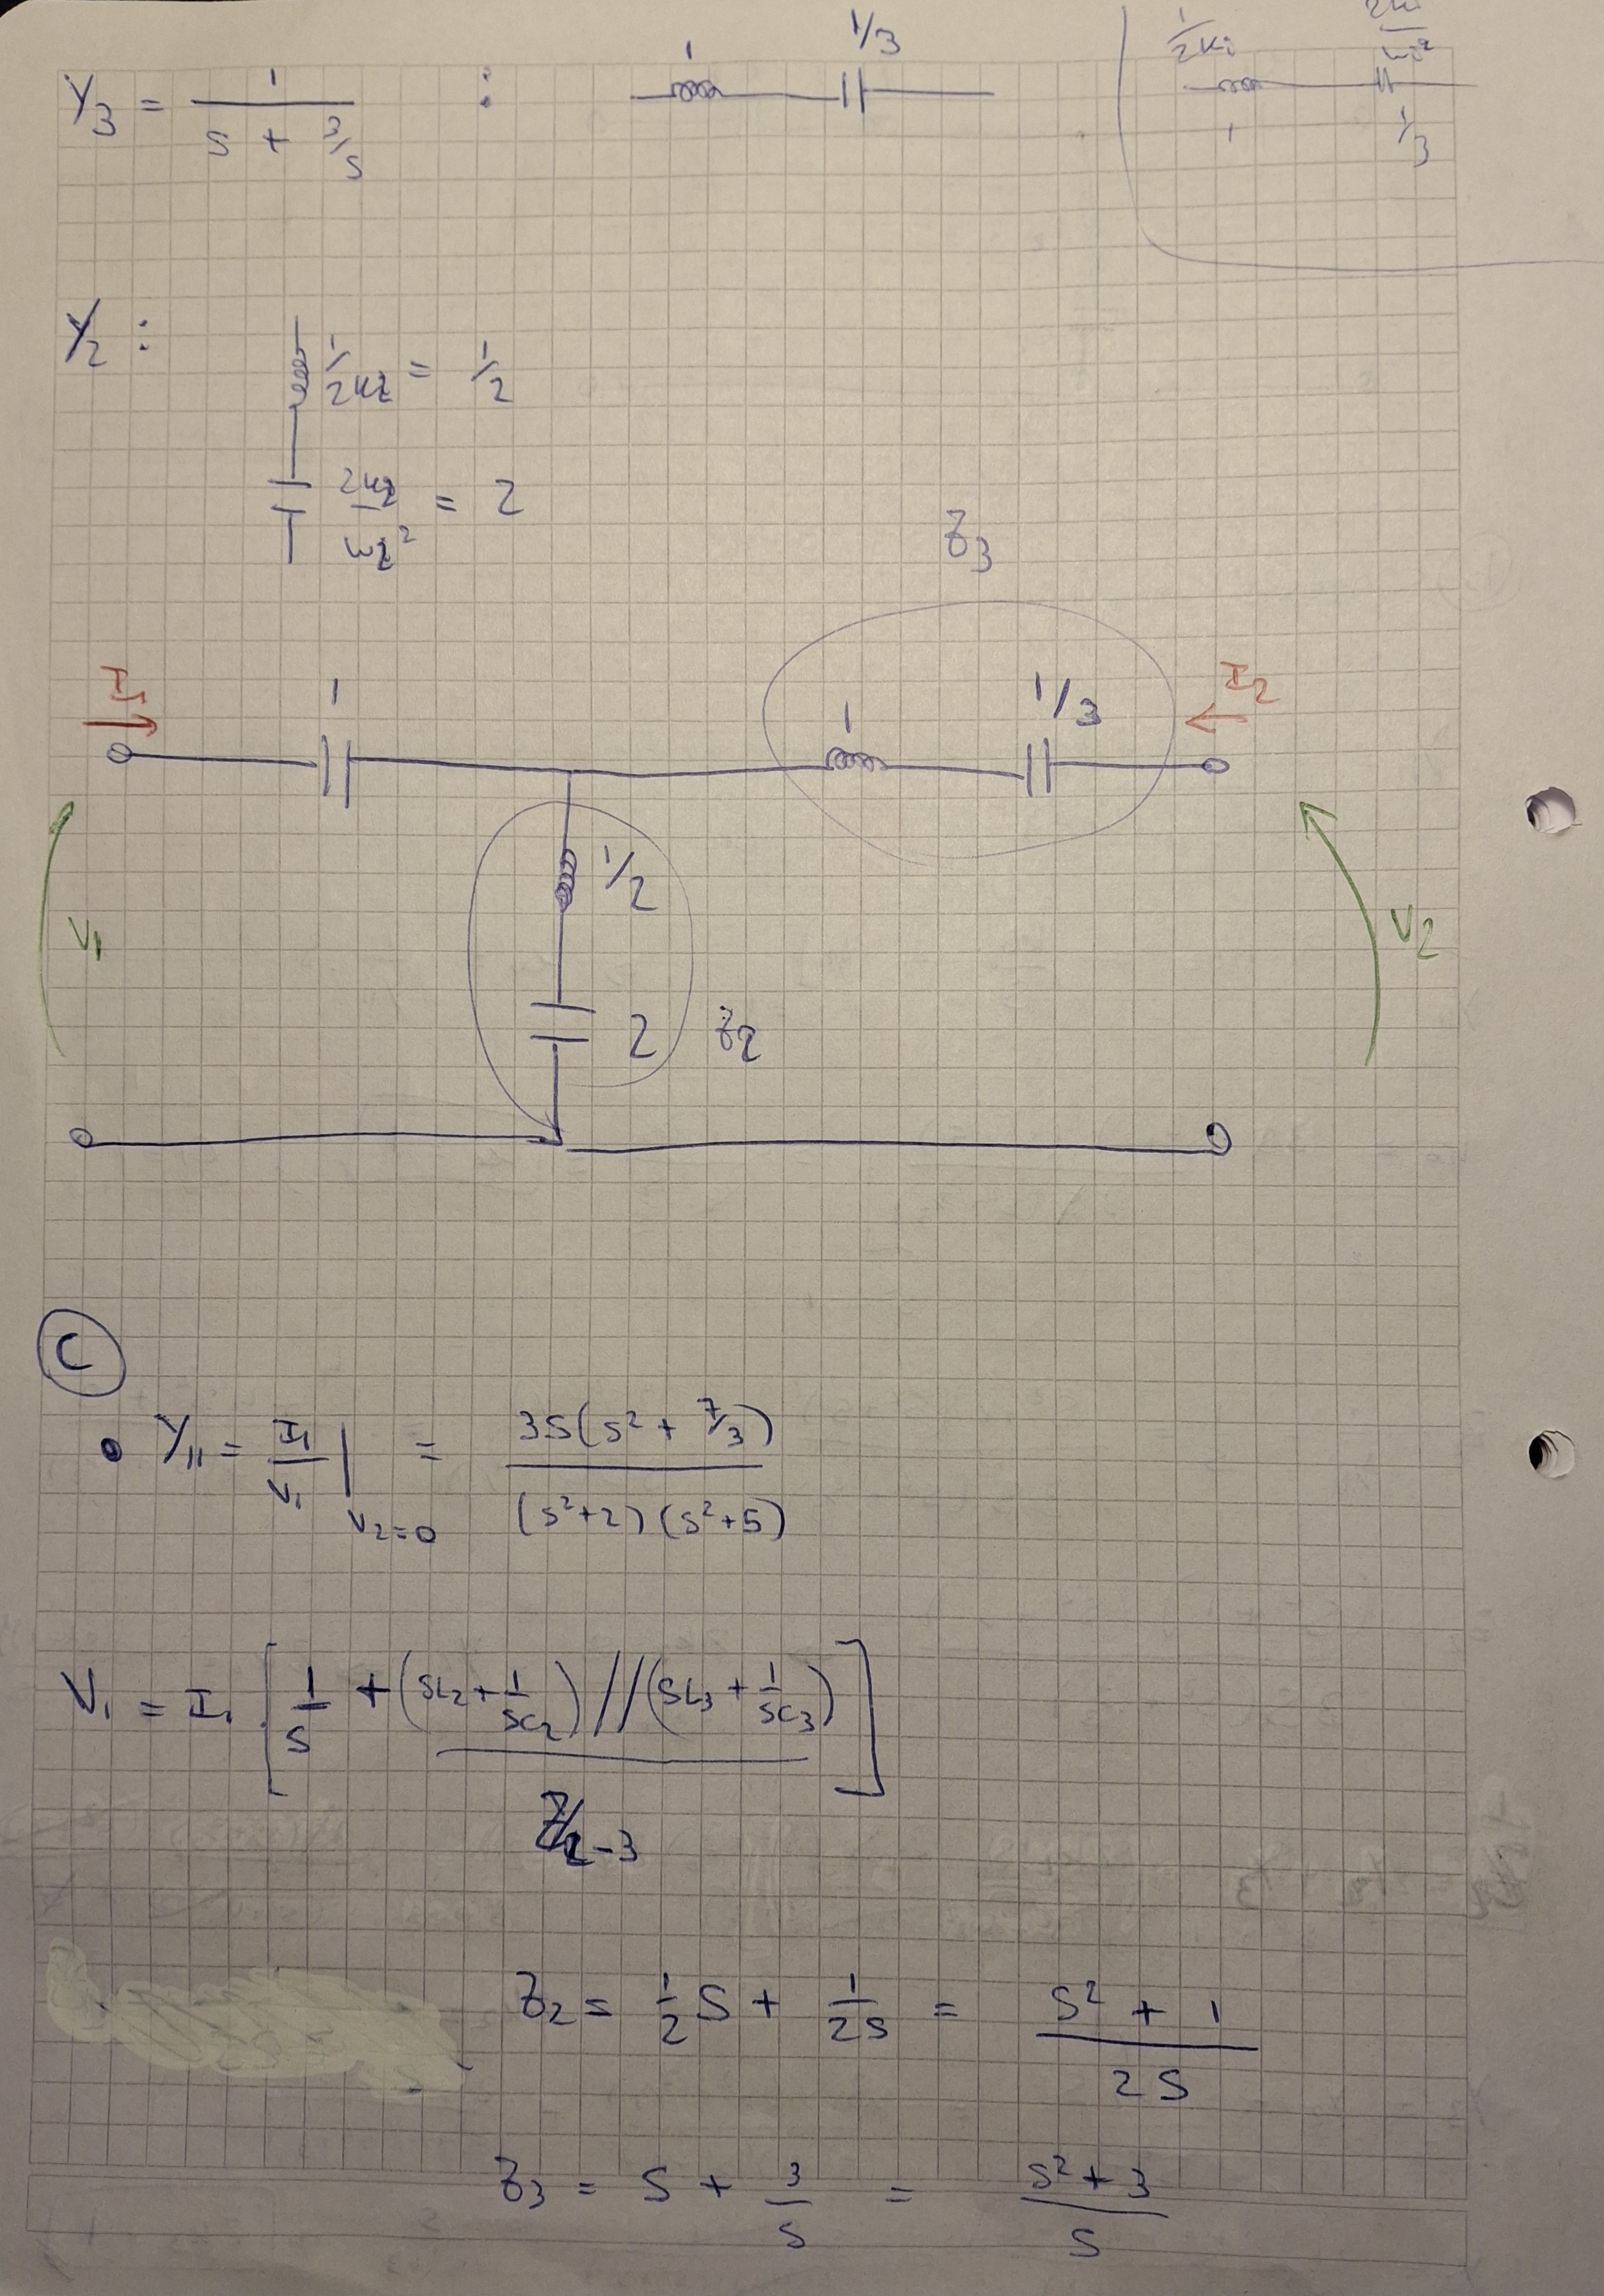 Y3 = 1 / (s + 3/s) : 1 1/3
1/2Ki 2Ki/ωi²
1 1/3
Y2 : 1/2K2 = 1/2
2K2/ω2² = 2
Z3
I1 1 1 1/3 I2
V1 1/2 V2
2 Z2
C
• Y11 = I1/V1 | V2=0 = 3S(S² + 7/3) / (S²+2)(S²+5)
V1 = I1 [ 1/S + (SL2 + 1/SC2) // (SL3 + 1/SC3) ]
Z2-3
Z2 = 1/2 S + 1/2S = S² + 1 / 2S
Z3 = S + 3/S = S² + 3 / S